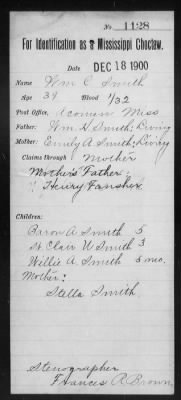 No. 1128
For Identification as a Mississippi Choctaw.
Date DEC 18 1900
Name Wm C. Smith
Age 39 Blood 1/32
Post Office, Miss
Father: Wm H Smith: Living
Mother: Emily A Smith: Living
Claims Through Mother
Mother's Father:
" Henry Fansher
Children:
Baron A Smith 5
St Clair W Smith 3
Willie A Smith 5 mo.
Mother:
Stella Smith
Stenographer
Frances R Brown